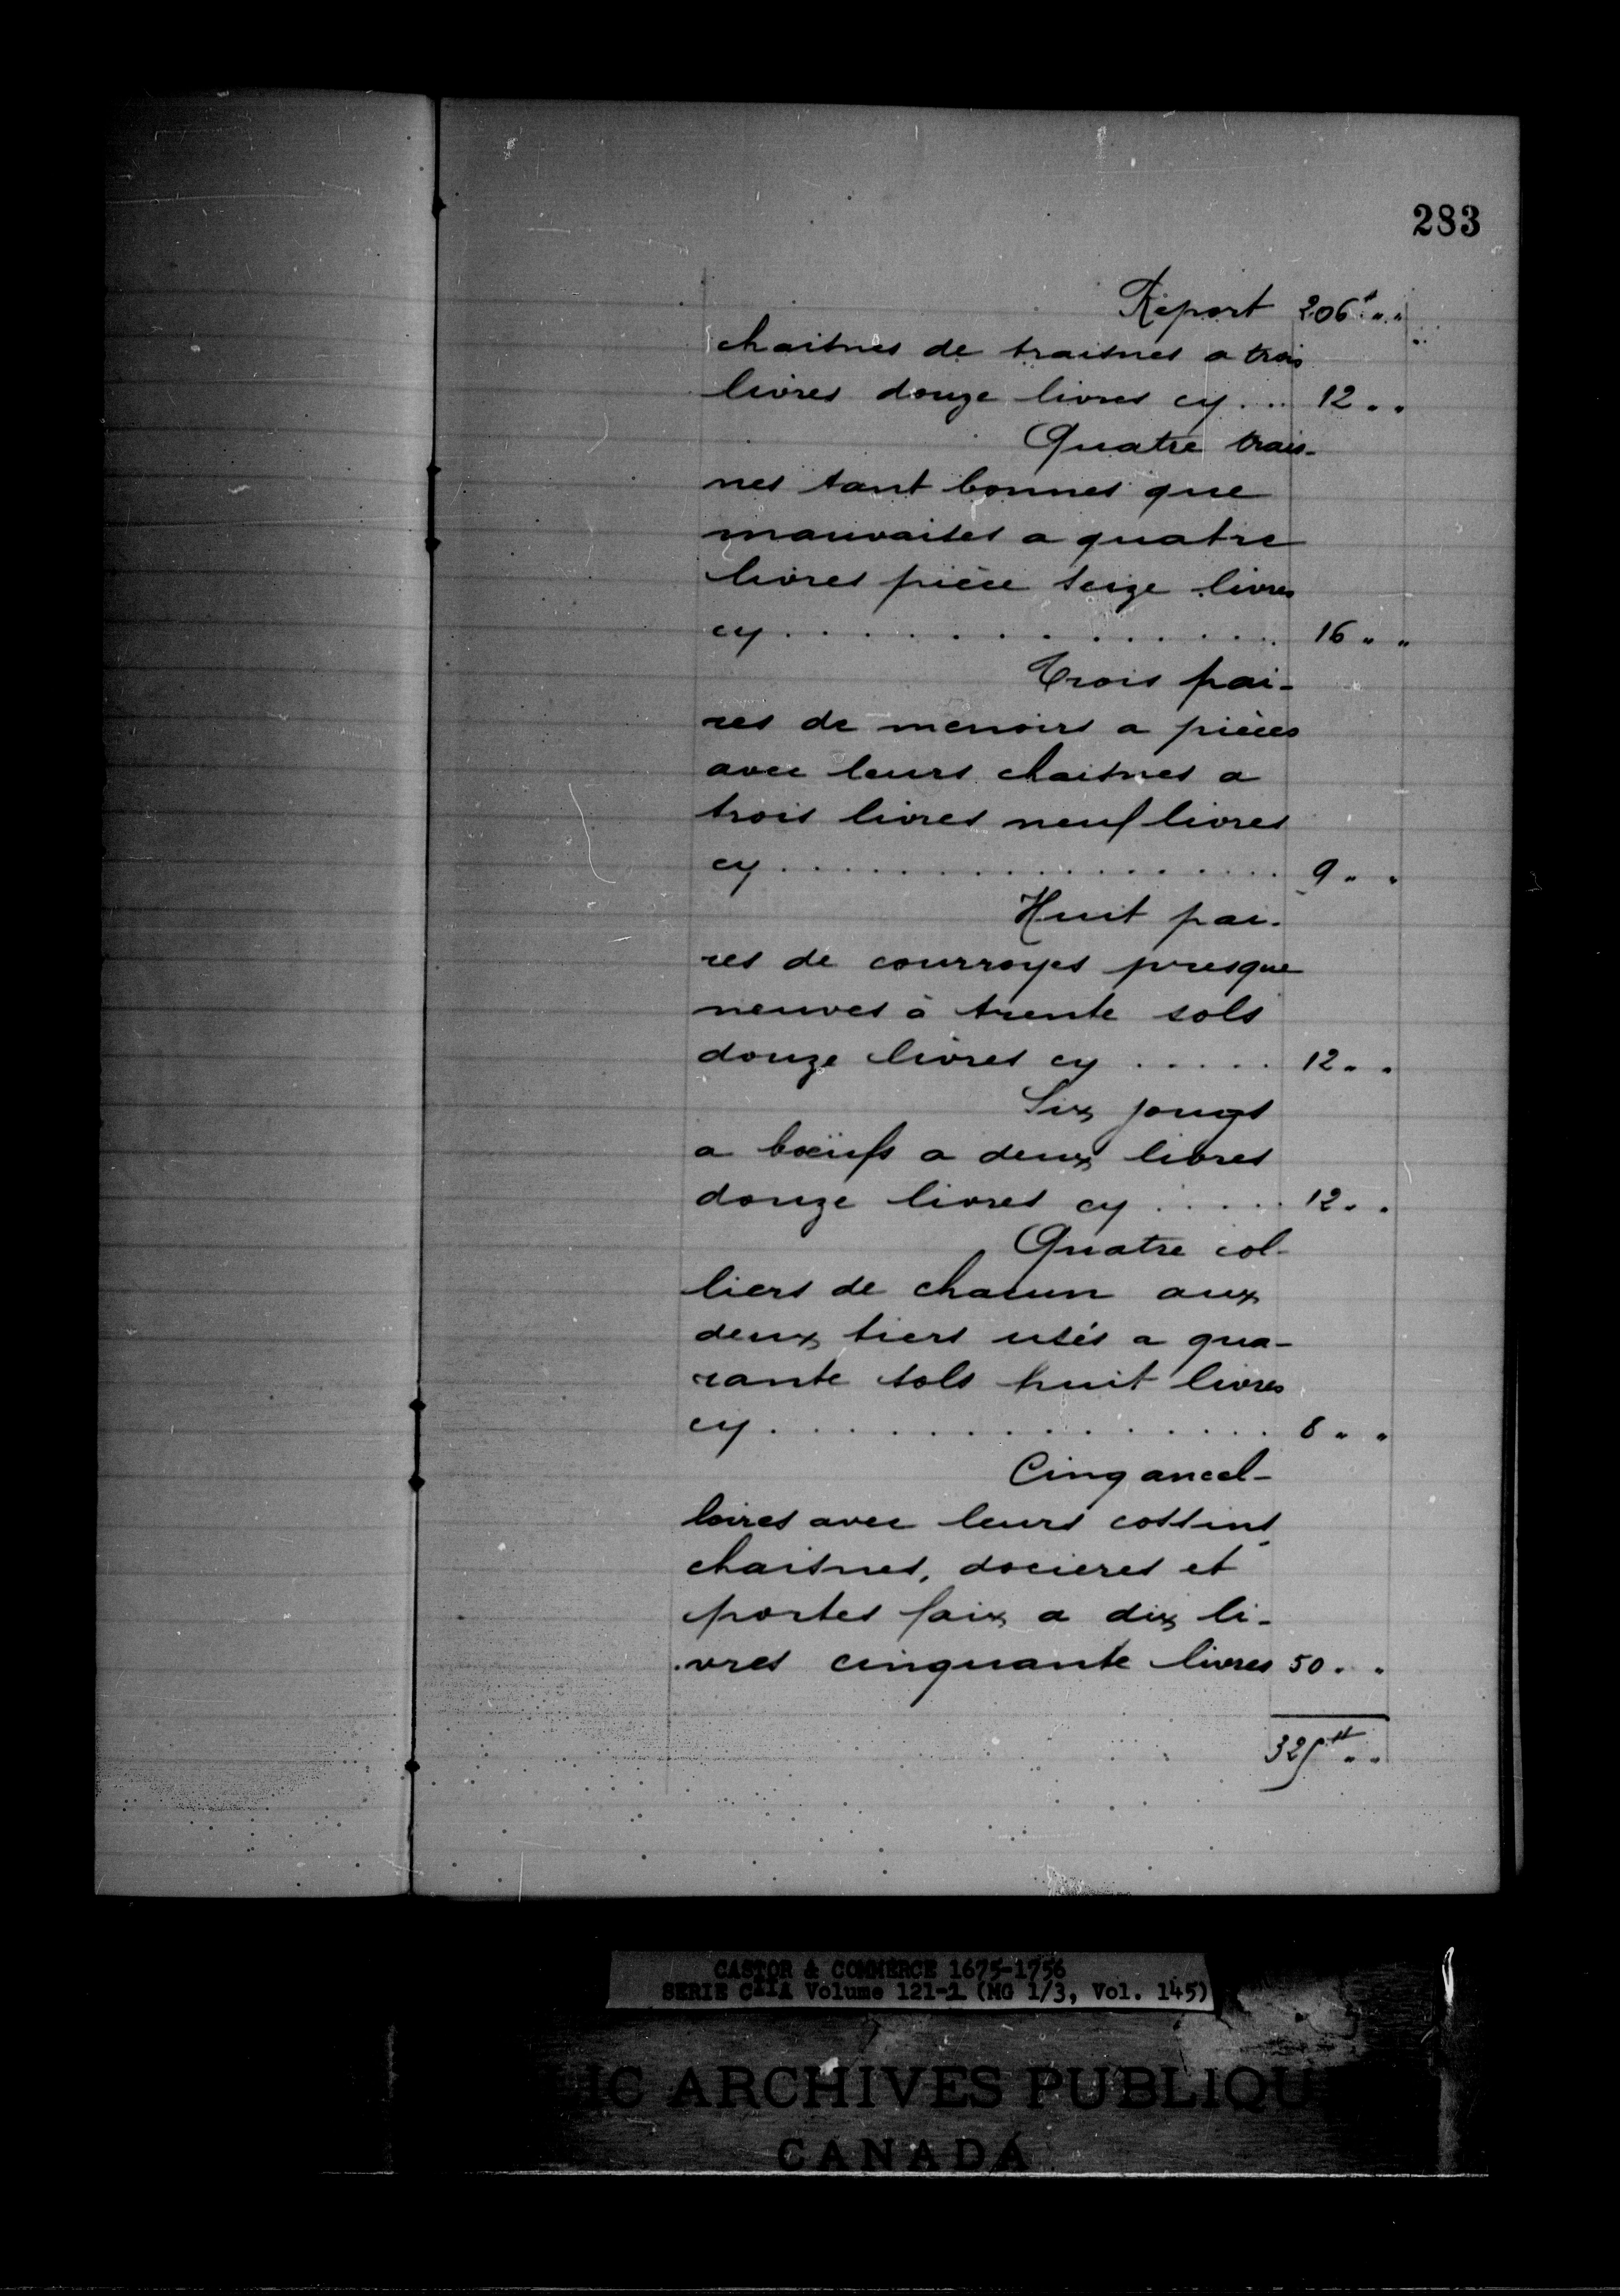 283
Report 206# " "
chaisnes de traisnes a trois
livres douze livres cy ... 12 " "
Quatre trais-
nes tant bonnes que
mauvaises a quatre
livres pièce seize livres
cy ................ 16 " "
Trois pai-
res de menoirs a pièces
avec leurs chaisnes a
trois livres neuf livres
cy ................ 9 " "
Huit pai-
res de courroyes presque
neuves à trente sols
douze livres cy ..... 12 " "
Six jougs
a boeufs a deux livres
douze livres cy ..... 12 " "
Quatre col-
liers de chacun aux
deux tiers usés a qua-
rante sols huit livres
cy ................ 8 " "
Cinq ancel-
loires avec leurs cossins
chaisnes, docieres et
portes faix a dix li-
vres cinquante livres 50 " "
325# " "
CASTOR & COMMERCE 1675-1756
SERIE C11A Volume 121-1 (MG 1/3, Vol. 145)
IC ARCHIVES PUBLIQU
CANADA